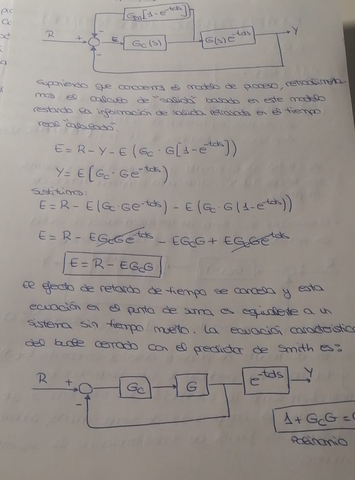 Gm[1-e^-tds]
R + E Gc(s) G(s)e^-tds Y
-
-
Suponiendo que conocemos el modelo de proceso, retroalimenta-
mos el cálculo de "salida" basado en este modelo
restando la información de salida retrasada en el tiempo
real "calculado".
E = R - Y - E (Gc · G[1-e^-tds])
Y = E [Gc · Ge^-tds]
Sustituimos:
E = R - E(Gc · Ge^-tds) - E (Gc · G (1-e^-tds))
E = R - EGcGe^-tds - EGcG + EGcGe^-tds
E = R - EGcG
El efecto de retardo de tiempo se cancela y esta
ecuación en el punto de suma es equivalente a un
sistema sin tiempo muerto. La ecuación característica
del bucle cerrado con el predictor de Smith es:
R + Gc G e^-tds Y
-
1 + GcG =
Polinomio